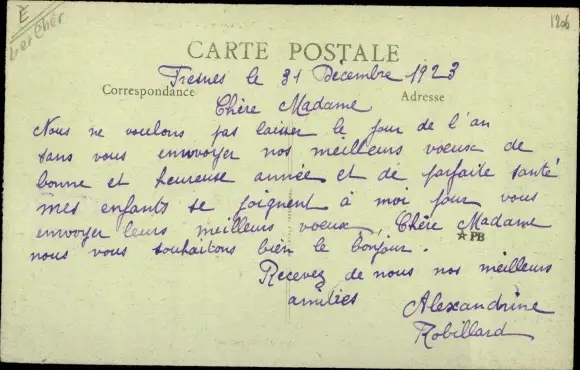 É
Loir et Cher
1206
CARTE POSTALE
Fresnes le 31 Décembre 1923
Correspondance
Adresse
Chère Madame
Nous ne voulons pas laisser le jour de l'an
sans vous envoyer nos meilleurs voeux de
bonne et heureuse année et de parfaite santé
mes enfants se joignent à moi pour vous
envoyer leurs meilleurs voeux, Chère Madame
nous vous souhaitons bien le bonjour.
PB
Recevez de nous nos meilleurs
amitiés
Alexandrine
Robillard